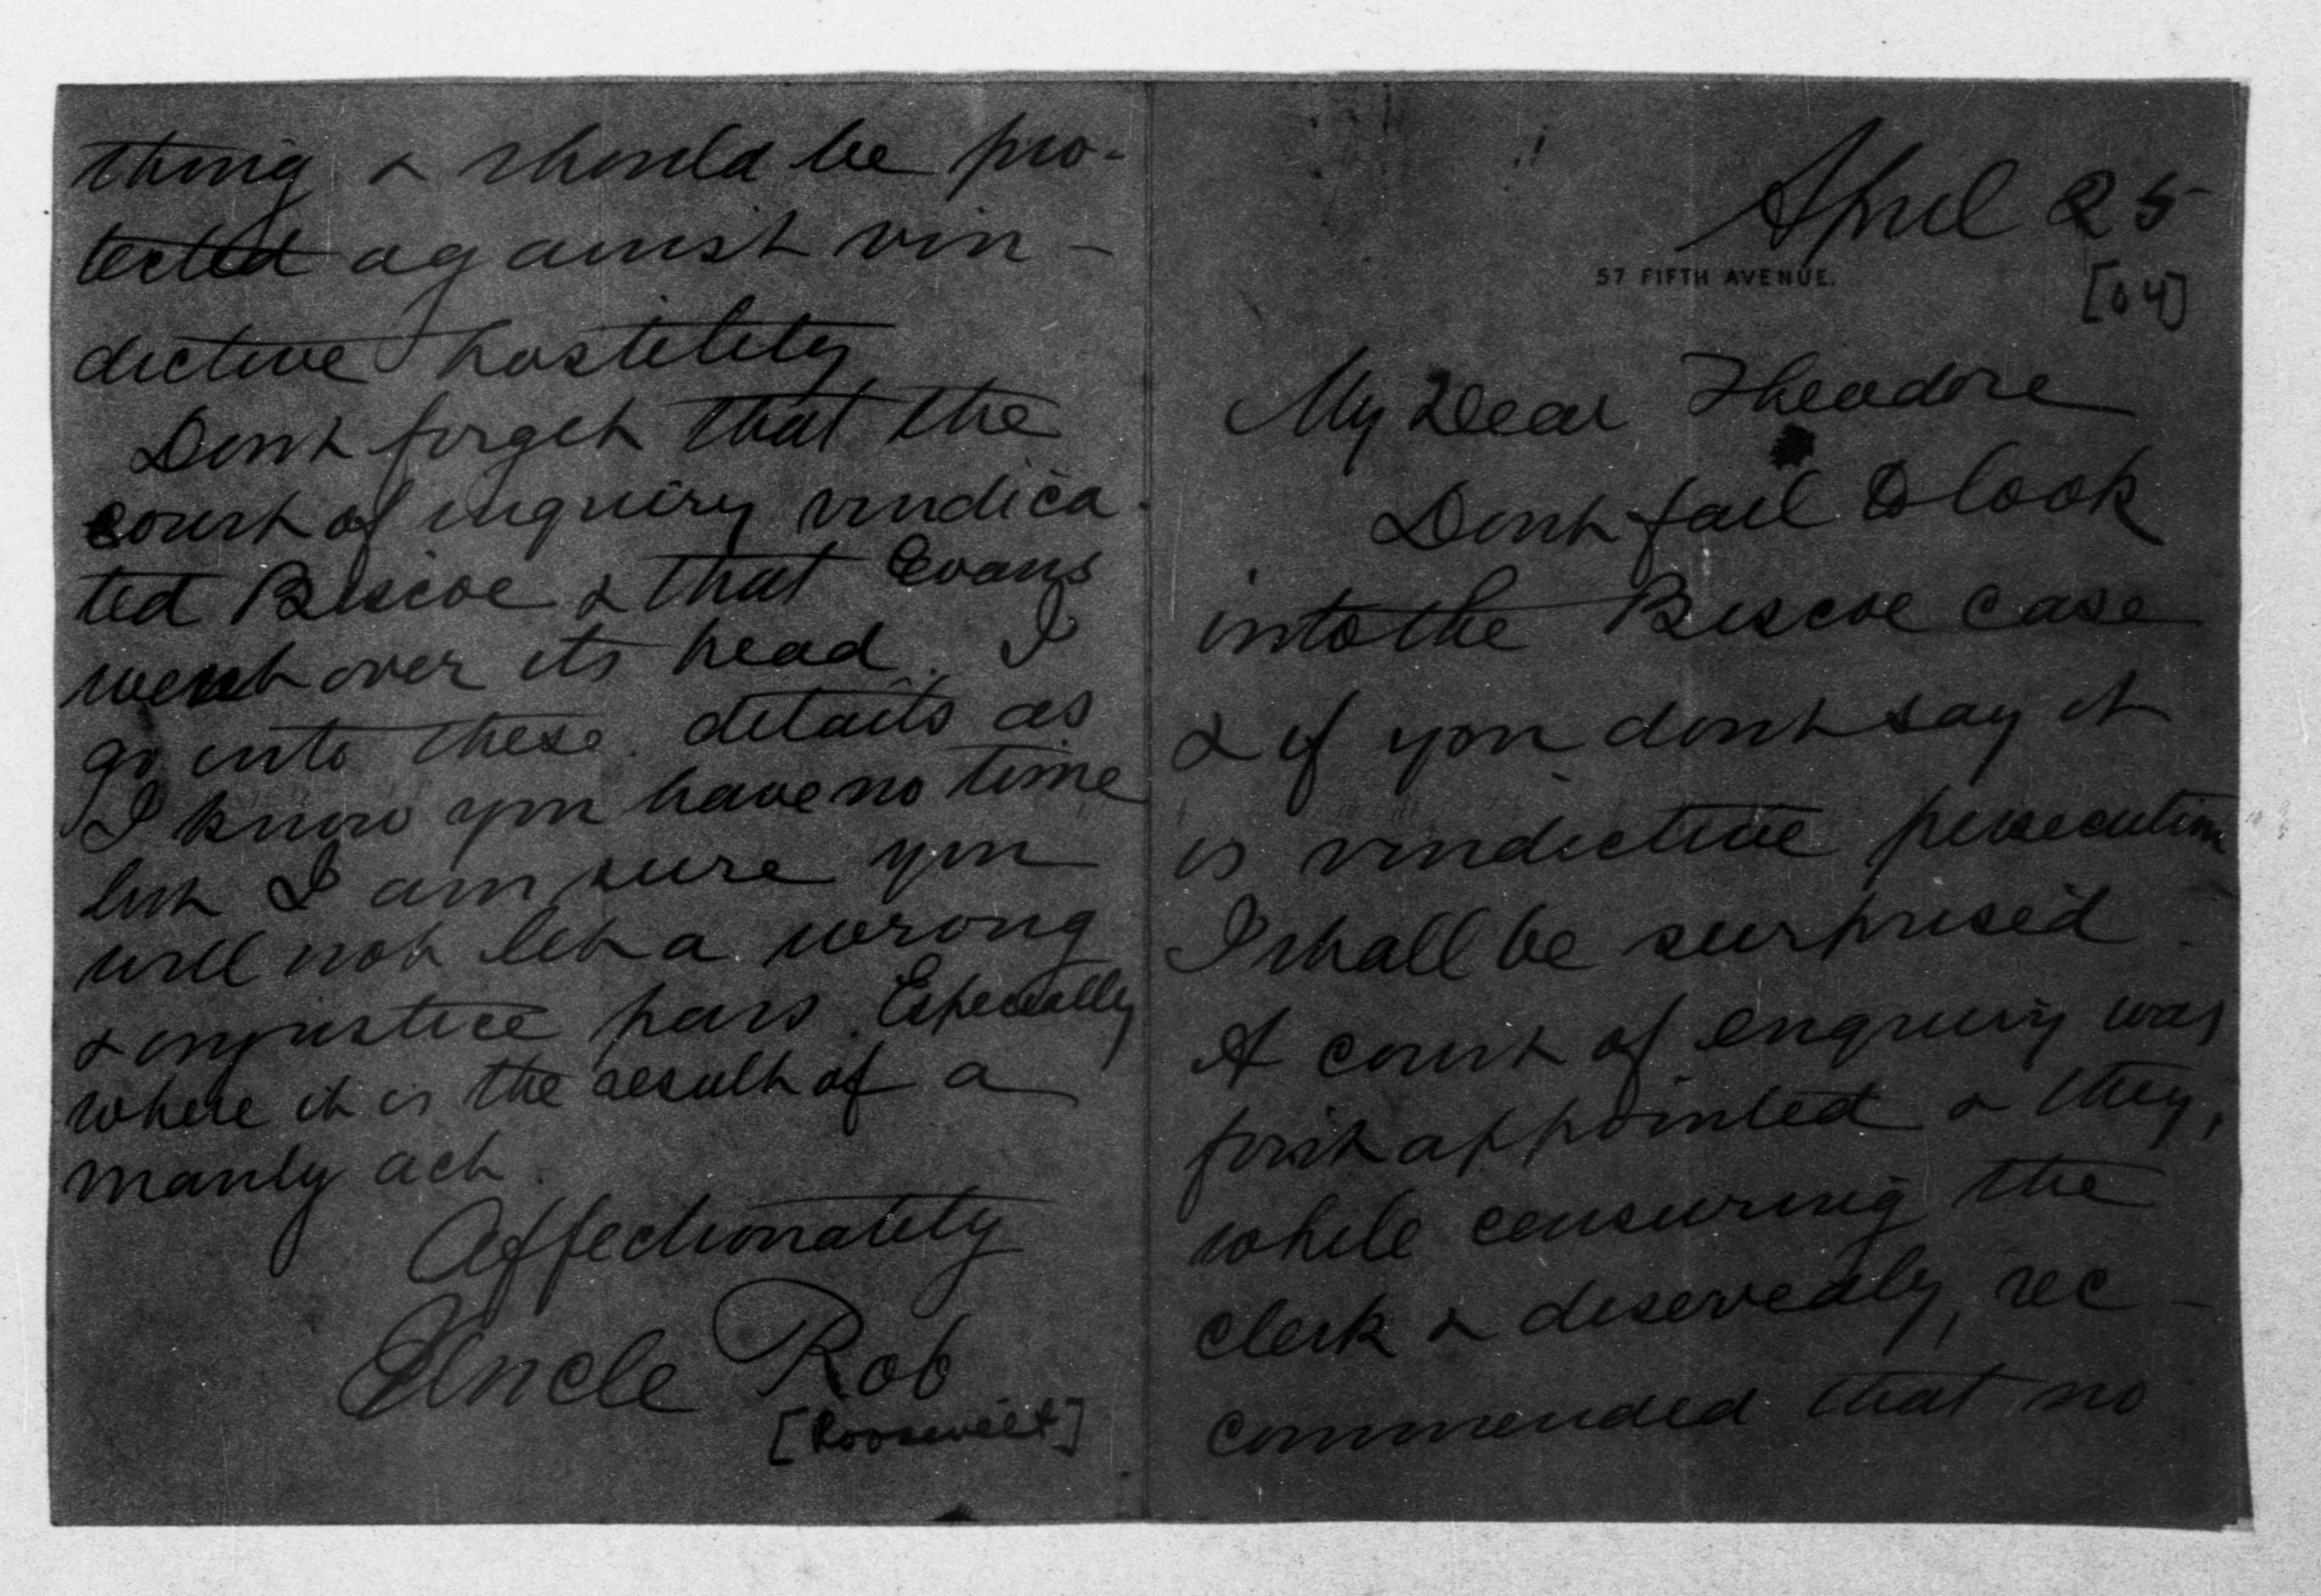 April 25
57 FIFTH AVENUE.
[04]
My Dear Theodore
Dont fail to look
into the Biscoe case
& if you dont say it
is vindictive persecution
I shall be surprised.
A court of enquiry was
first appointed & they,
while censuring the
clerk & deservedly, rec-
commended that no
thing & should be pro-
tected against vin-
dictive hostility
Dont forget that the
court of inquiry vindica-
ted Biscoe & that Evans
went over its head. I
go into these details as
I know you have no time
but I am sure you
will not let a wrong
& injustice pass. Especially
where it is the result of a
manly act.
Affectionately
Uncle Rob
[Roosevelt]